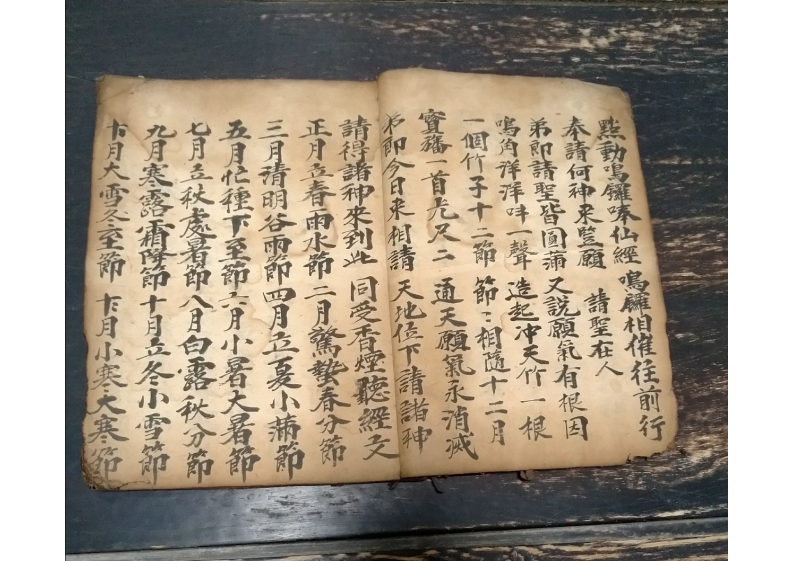 點動鳴鑼奉仙經 鳴鑼相催往前行
奉請何神來監願 請聖在人
弟郎請聖皆圓蒲 又説願氣有根因
鳴角洋洋吽一聲 造起冲天竹一根
一個竹子十二節 節〻相隨十二月
寶旛一首尤尺二 通天願氣永消滅
弟郎今日來相請 天地位下請諸神
請得諸神來到此 同受香煙聽經文
正月立春雨水節 二月驚蟄春分節
三月清明谷雨節 四月立夏小滿節
五月忙種下至節 六月小暑大暑節
七月立秋處暑節 八月白露秋分節
九月寒露霜降節 十月立冬小雪節
十一月大雪冬至節 十二月小寒大寒節